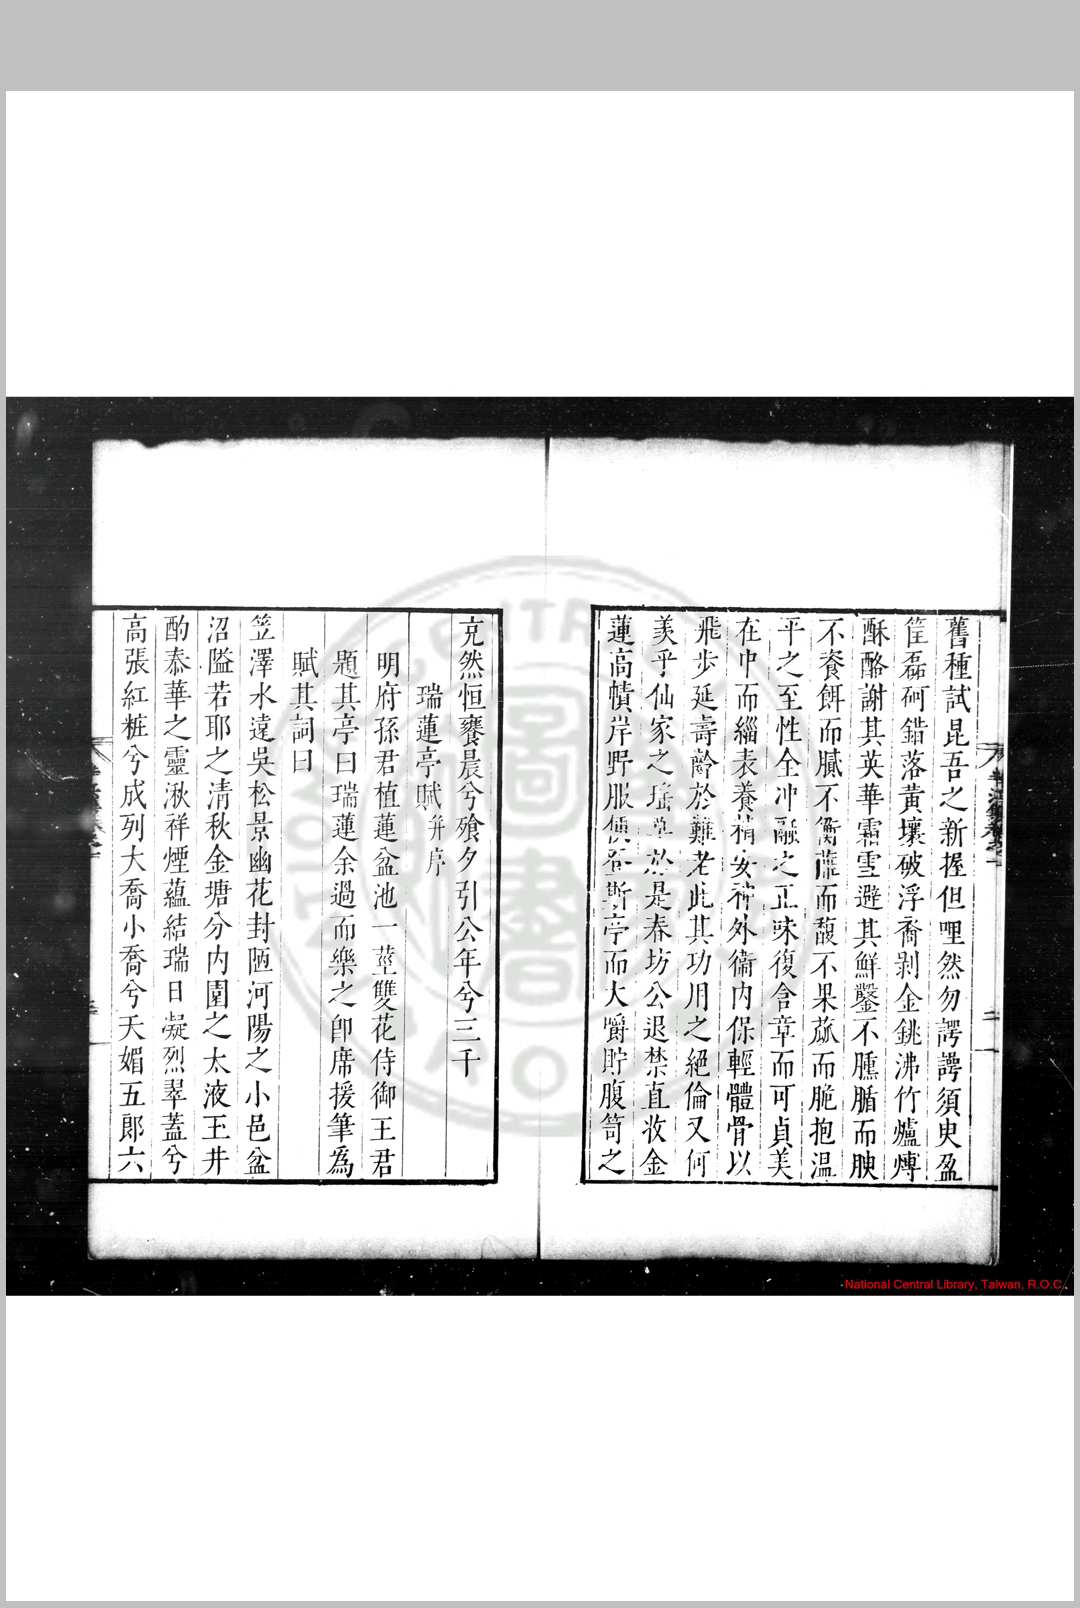 舊種試昆吾之新握但哩然勿諤諤須臾盈
筐磊砢錯落黃壤破浮裔剥金銚沸竹爐煿
酥酪謝其英華霜雪避其鮮鑿不臐腯而腴
不餈餌而膩不蘅蘼而馥不果蓏而脆抱溫
平之至性全冲融之正味復含章而可貞美
在中而緇表養精安神外衞内保輕體骨以
飛步延壽齡於難老此其功用之絕倫又何
羡乎仙家之瑤草於是春坊公退禁直收金
蓮高幘岸野服便登斯亭而大嚼貯腹笥之
充然恒饔晨兮飱夕引公年兮三千
瑞蓮亭賦并序
明府孫君植蓮盆池一莖雙花侍御王君
題其亭曰瑞蓮余過而樂之卽席援筆為
賦其詞曰
笠澤水遠吳松景幽花封陋河陽之小邑盆
沼隘若耶之清秋金塘分内園之太液玉井
酌泰華之靈湫祥煙蘊結瑞日凝烈翠蓋兮
高張紅粧兮成列大喬小喬兮夭媚五郎六
National Central Library, Taiwan, R.O.C.